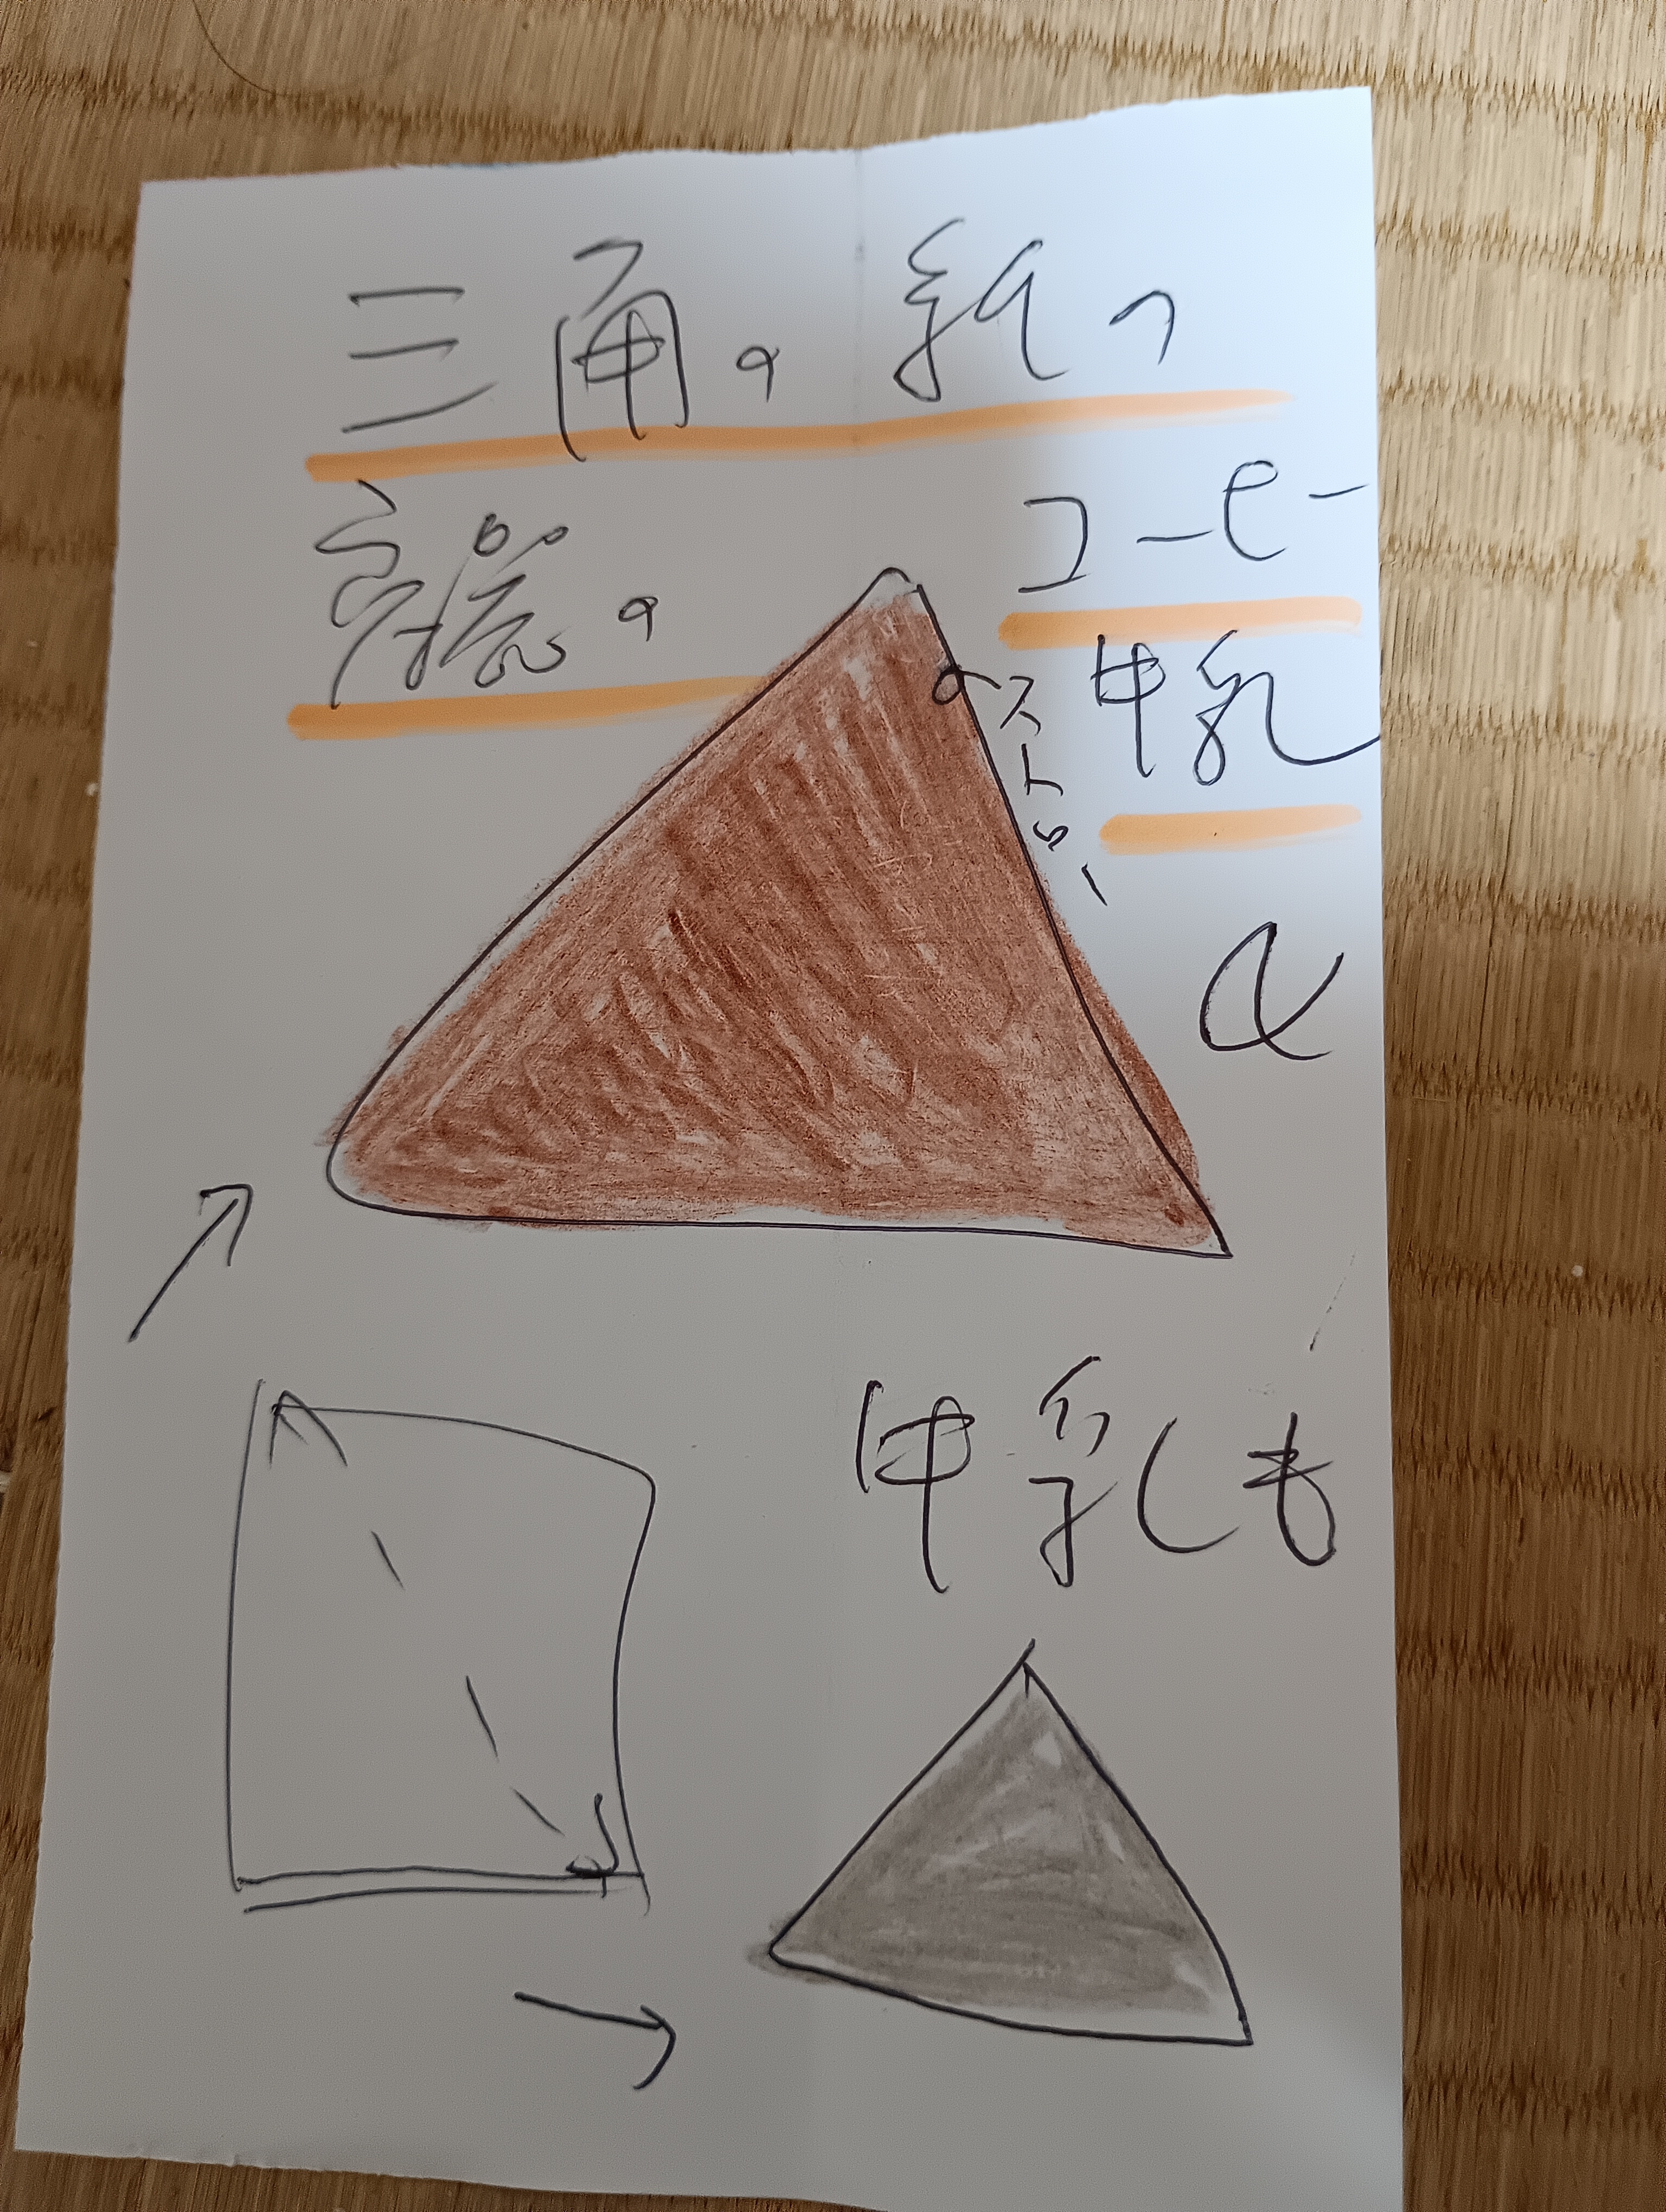 三角の紙の
容器の
コーヒー
牛乳
ストロー
牛乳も